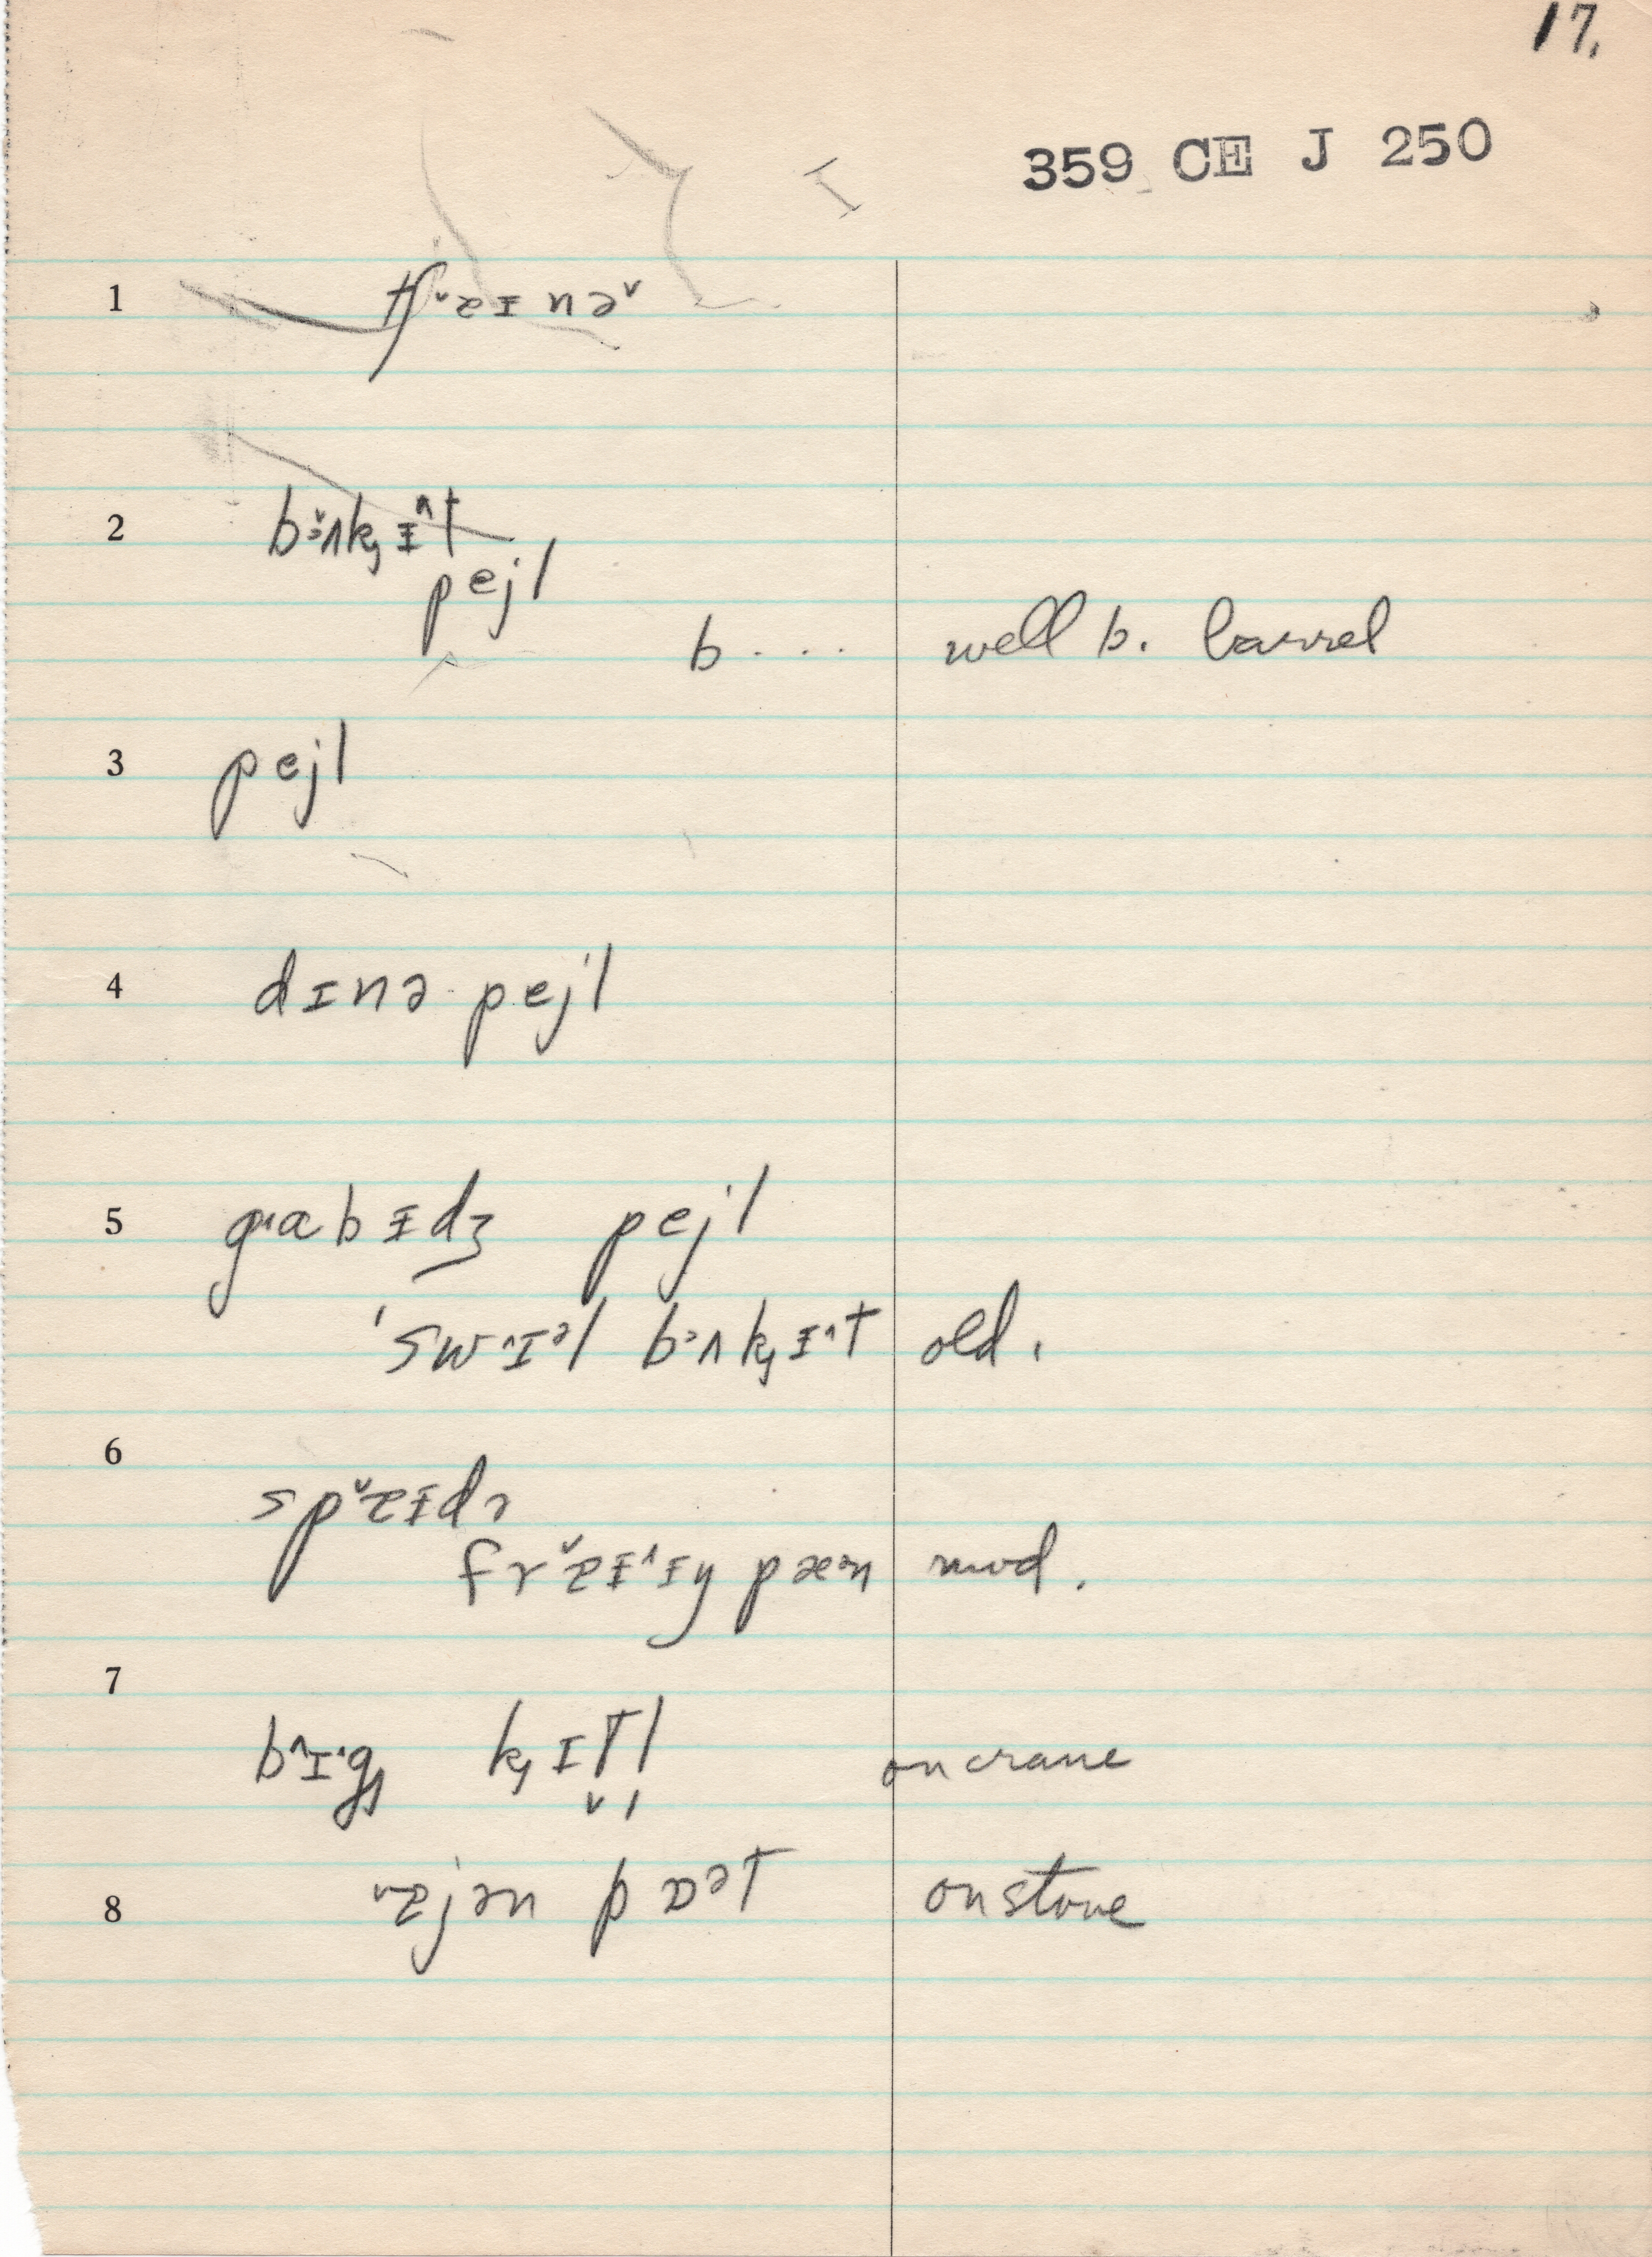 17.
359 CE J 250
1 tʃᵛæɪnəᵛ
2 bɜʌk̡ɪ^t
pejl
b . . . well b. barrel
3 pejl
4 dɪnə pejl
5 gɑbɪdʒ pejl
'swɪᵊl bɜʌk̡ɪ^t old.
6 spᵛæɪdɚ
frᵛæɪ^ɪŋ pæᵊn mod.
7 b^ɪ'g̡ k̡ɪtl on crane
8 ᵛæjən pɒᵊt on stove